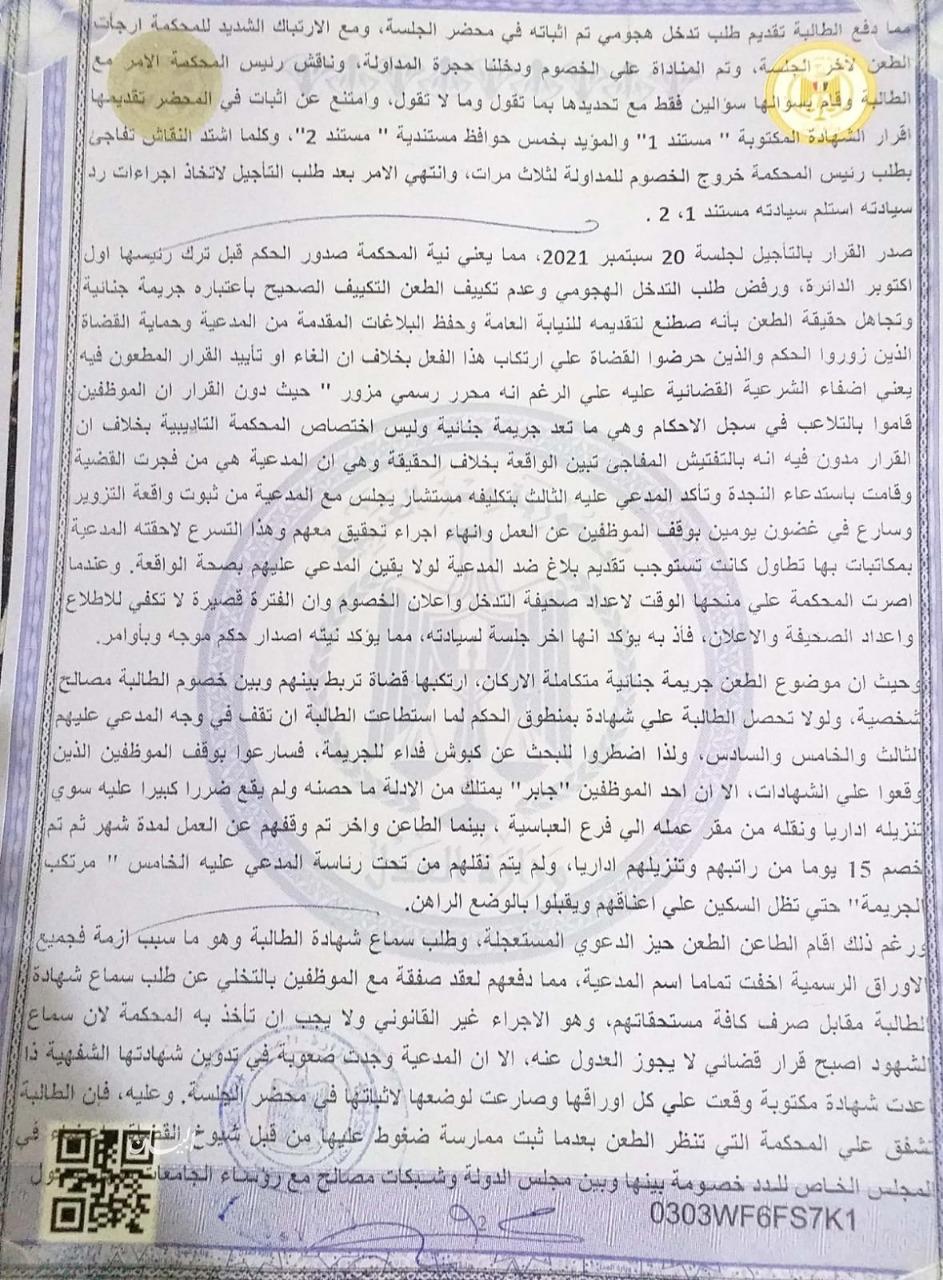 مما دفع الطالبة تقديم طلب تدخل هجومي تم اثباته في محضر الجلسة، ومع الارتباك الشديد للمحكمة ارجأت
الطعن لآخر الجلسة، وتم المناداة علي الخصوم ودخلنا حجرة المداولة، وناقش رئيس المحكمة الامر مع
الطالبة وقام بسؤالها سؤالين فقط مع تحديدها بما تقول وما لا تقول، وامتنع عن اثبات في المحضر تقديمها
اقرار الشهادة المكتوبة " مستند 1" والمؤيد بخمس حوافظ مستندية " مستند 2"، وكلما اشتد النقاش تفاجئ
بطلب رئيس المحكمة خروج الخصوم للمداولة لثلاث مرات، وانتهي الامر بعد طلب التأجيل لاتخاذ اجراءات رد
سيادته استلم سيادته مستند 1، 2 .
صدر القرار بالتأجيل لجلسة 20 سبتمبر 2021، مما يعني نية المحكمة صدور الحكم قبل ترك رئيسها اول
اكتوبر الدائرة، ورفض طلب التدخل الهجومي وعدم تكييف الطعن التكييف الصحيح بأعتباره جريمة جنائية
وتجاهل حقيقة الطعن بأنه صطنع لتقديمه للنيابة العامة وحفظ البلاغات المقدمة من المدعية وحماية القضاة
الذين زوروا الحكم والذين حرضوا القضاة علي ارتكاب هذا الفعل بخلاف ان الغاء او تأييد القرار المطعون فيه
يعني اضفاء الشرعية القضائية عليه علي الرغم انه محرر رسمي مزور " حيث دون القرار ان الموظفين
قاموا بالتلاعب في سجل الاحكام وهي ما تعد جريمة جنائية وليس اختصاص المحكمة التاديبية بخلاف ان
القرار مدون فيه انه بالتفتيش المفاجئ تبين الواقعة بخلاف الحقيقة وهي ان المدعية هي من فجرت القضية
وقامت باستدعاء النجدة وتأكد المدعي عليه الثالث بتكليفه مستشار يجلس مع المدعية من ثبوت واقعة التزوير
وسارع في غضون يومين بوقف الموظفين عن العمل وانهاء اجراء تحقيق معهم وهذا التسرع لاحقته المدعية
بمكاتبات بها تطاول كانت تستوجب تقديم بلاغ ضد المدعية لولا يقين المدعي عليهم بصحة الواقعة. وعندما
اصرت المحكمة علي منحها الوقت لاعداد صحيفة التدخل واعلان الخصوم وان الفترة قصيرة لا تكفي للاطلاع
واعداد الصحيفة والاعلان، فأذ به يؤكد انها اخر جلسة لسيادته، مما يؤكد نيته اصدار حكم موجه وبأوامر.
وحيث ان موضوع الطعن جريمة جنائية متكاملة الاركان، ارتكبها قضاة تربط بينهم وبين خصوم الطالبة مصالح
شخصية، ولولا تحصل الطالبة علي شهادة بمنطوق الحكم لما استطاعت الطالبة ان تقف في وجه المدعي عليهم
الثالث والخامس والسادس، ولذا اضطروا للبحث عن كبوش فداء للجريمة، فسارعوا بوقف الموظفين الذين
وقعوا علي الشهادات، الا ان احد الموظفين "جابر" يمتلك من الادلة ما حصنه ولم يقع ضررا كبيرا عليه سوي
تنزيله اداريا ونقله من مقر عمله الي فرع العباسية ، بينما الطاعن واخر تم وقفهم عن العمل لمدة شهر ثم تم
خصم 15 يوما من راتبهم وتنزيلهم اداريا، ولم يتم نقلهم من تحت رئاسة المدعي عليه الخامس " مرتكب
الجريمة" حتي تظل السكين علي اعناقهم ويقبلوا بالوضع الراهن.
ورغم ذلك اقام الطاعن الطعن حيز الدعوي المستعجلة، وطلب سماع شهادة الطالبة وهو ما سبب ازمة فجميع
الاوراق الرسمية اخفت تماما اسم المدعية، مما دفعهم لعقد صفقة مع الموظفين بالتخلي عن طلب سماع شهادة
الطالبة مقابل صرف كافة مستحقاتهم، وهو الاجراء غير القانوني ولا يجب ان تأخذ به المحكمة لان سماع
الشهود اصبح قرار قضائي لا يجوز العدول عنه، الا ان المدعية وجدت صعوبة في تدوين شهادتها الشفهية ذا
عدت شهادة مكتوبة وقعت علي كل اوراقها وصارعت لوضعها لاثباتها في محضر الجلسة. وعليه، فإن الطالبة
تشفق علي المحكمة التي تنظر الطعن بعدما ثبت ممارسة ضغوط عليها من قبل شيوخ في
المجلس الخاص للدد خصومة بينها وبين مجلس الدولة وشبكات مصالح مع رؤساء الجامعات
2
0303WF6FS7K1